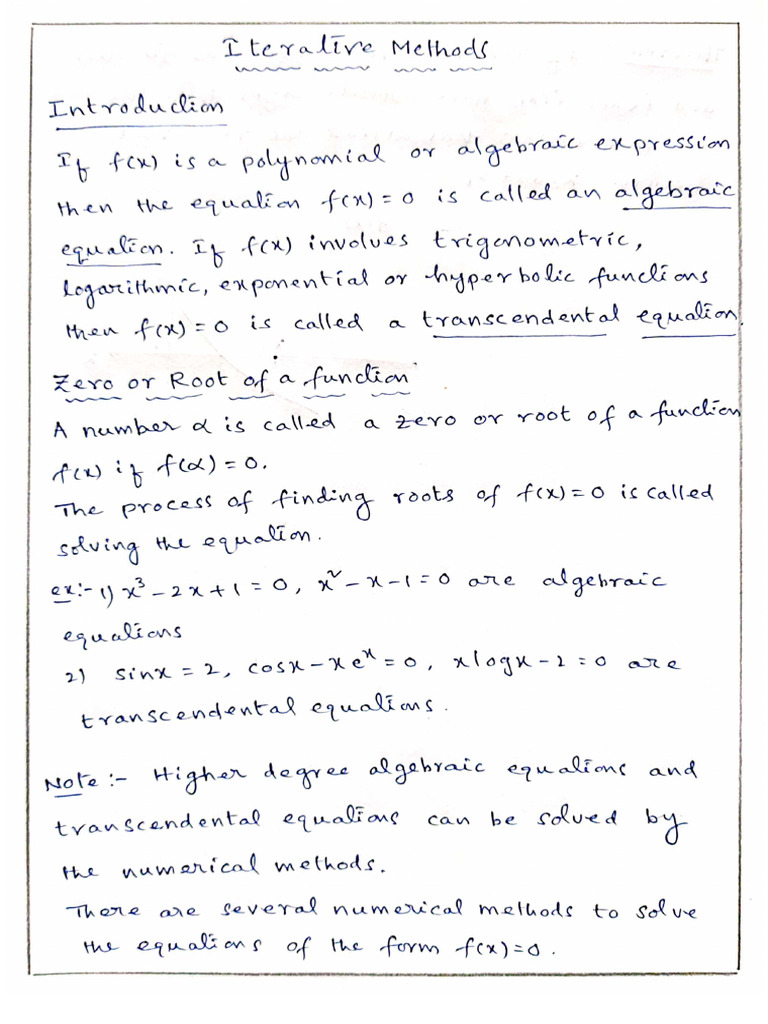 Iterative Methods
Introduction
If f(x) is a polynomial or algebraic expression
then the equation f(x) = 0 is called an algebraic
equation. If f(x) involves trigonometric,
logarithmic, exponential or hyperbolic functions
then f(x) = 0 is called a transcendental equation.
Zero or Root of a function
A number α is called a zero or root of a function
f(x) if f(α) = 0.
The process of finding roots of f(x) = 0 is called
solving the equation.
ex:- 1) x³ - 2x + 1 = 0, x² - x - 1 = 0 are algebraic
equations
2) sinx = 2, cosx - xeˣ = 0, xlogx - 2 = 0 are
transcendental equations.
Note:- Higher degree algebraic equations and
transcendental equations can be solved by
the numerical methods.
There are several numerical methods to solve
the equations of the form f(x) = 0.